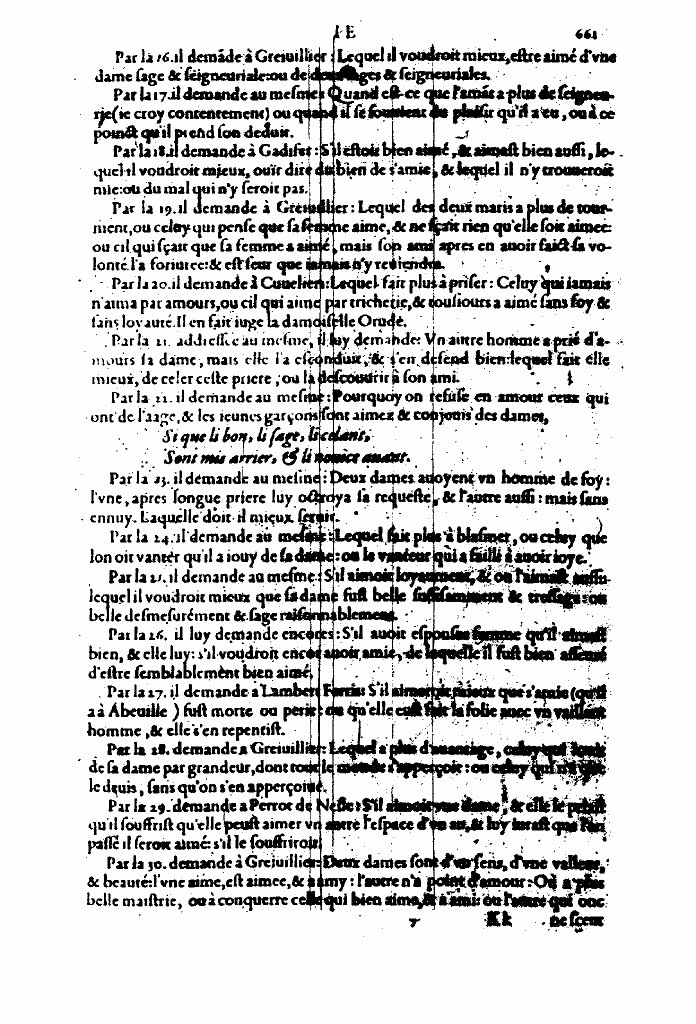 IE 661
Par la 16. il demāde à Greiuillier: Lequel il voudroit mieux, estre aimé d'vne
dame sage & seigneuriale: ou de deux sages & seigneuriales.
Par la 17. il demande au mesme: Quand est-ce que l'amāt a plus de seigneu-
rie (ie croy contentement) ou quand il se souuient du plaisir qu'il a eu, ou à ce
poinct qu'il prend son deduit.
Par la 18. il demande à Gadifer: S'il estoit bien aimé, & aimast bien aussi, le-
quel il voudroit mieux, ouïr dire du bien de s'amie, & lequel il n'y trouueroit
mie: ou du mal qui n'y seroit pas.
Par la 19. il demande à Greiuillier: Lequel des deux maris a plus de tour-
ment, ou celuy qui pense que sa femme aime, & ne sçait rien qu'elle soit aimee:
ou cil qui sçait que sa femme a aimé, mais son ami apres en auoir faict sa vo-
lonté l'a foriuree: & est seur que iamais n'y reuiendra.
Par la 20. il demande à Cuuelier: Lequel fait plus à priser: Celuy qui iamais
n'aima par amours, ou cil qui aime par tricherie, & tousiours a aimé sans foy &
sans loyauté. Il en fait iuge la damoiselle Orude.
Par la 21. addressee au mesme, il luy demande: Vn autre homme a prié d'a-
mours sa dame, mais elle l'a esconduit, & s'en defend bien: lequel fait elle
mieux, de celer ceste priere, ou la descouurir à son ami.
Par la 22. il demande au mesme: Pourquoy on refuse en amour ceux qui
ont de l'aage, & les ieunes garçons sont aimez & conjouis des dames,
Si que li bon, li sage, li celant,
Sont mis arrier, & li nouice auant.
Par la 23. il demande au mesme: Deux dames auoyent vn homme de foy:
l'vne, apres longue priere luy octroya sa requeste, & l'autre aussi: mais sans
ennuy. Laquelle doit-il mieux seruir.
Par la 24. il demande au mesme: Lequel fait plus à blasmer, ou celuy que
lon oit vanter qu'il a iouy de sa dame: ou le vanteur qui a failli à auoir ioye.
Par la 25. il demande au mesme: S'il aimoit loyaument, & on l'aimast aussi:
lequel il voudroit mieux que sa dame fust belle suffisamment & tressage: ou
belle desmesurément & sage raisonnablement.
Par la 26. il luy demande encores: S'il auoit espousé femme qu'il aimast
bien, & elle luy: s'il voudroit encor auoir amie, de laquelle il fust bien asseuré
d'estre semblablement bien aimé.
Par la 27. il demande à Lambert Ferris: S'il aimeroit mieux que s'amie (qu'il
a à Abeuille) fust morte ou perie: ou qu'elle eust fait la folie auec vn vaillant
homme, & elle s'en repentist.
Par la 28. demande a Greiuillier: Lequel a plus d'auantage, celuy qui iouit
de sa dame par grandeur, dont tout le monde s'apperçoit: ou celuy qui n'a que
le deuis, sans qu'on s'en apperçoiue.
Par la 29. demande a Perrot de Nesle: S'il aimoit vne dame, & elle le priast
qu'il souffrist qu'elle peust aimer vn autre l'espace d'vn an, & luy iurast que l'an
passé il seroit aimé: s'il le souffriroit.
Par la 30. demande à Greiuillier: Deux dames sont d'vn sens, d'vne valeur,
& beauté: l'vne aime, est aimee, & a amy: l'autre n'a point d'amour: Où a plus
belle maistrie, ou à conquerre celle qui bien aime, & a ami: ou l'autre qui onc
Kk ne sceut